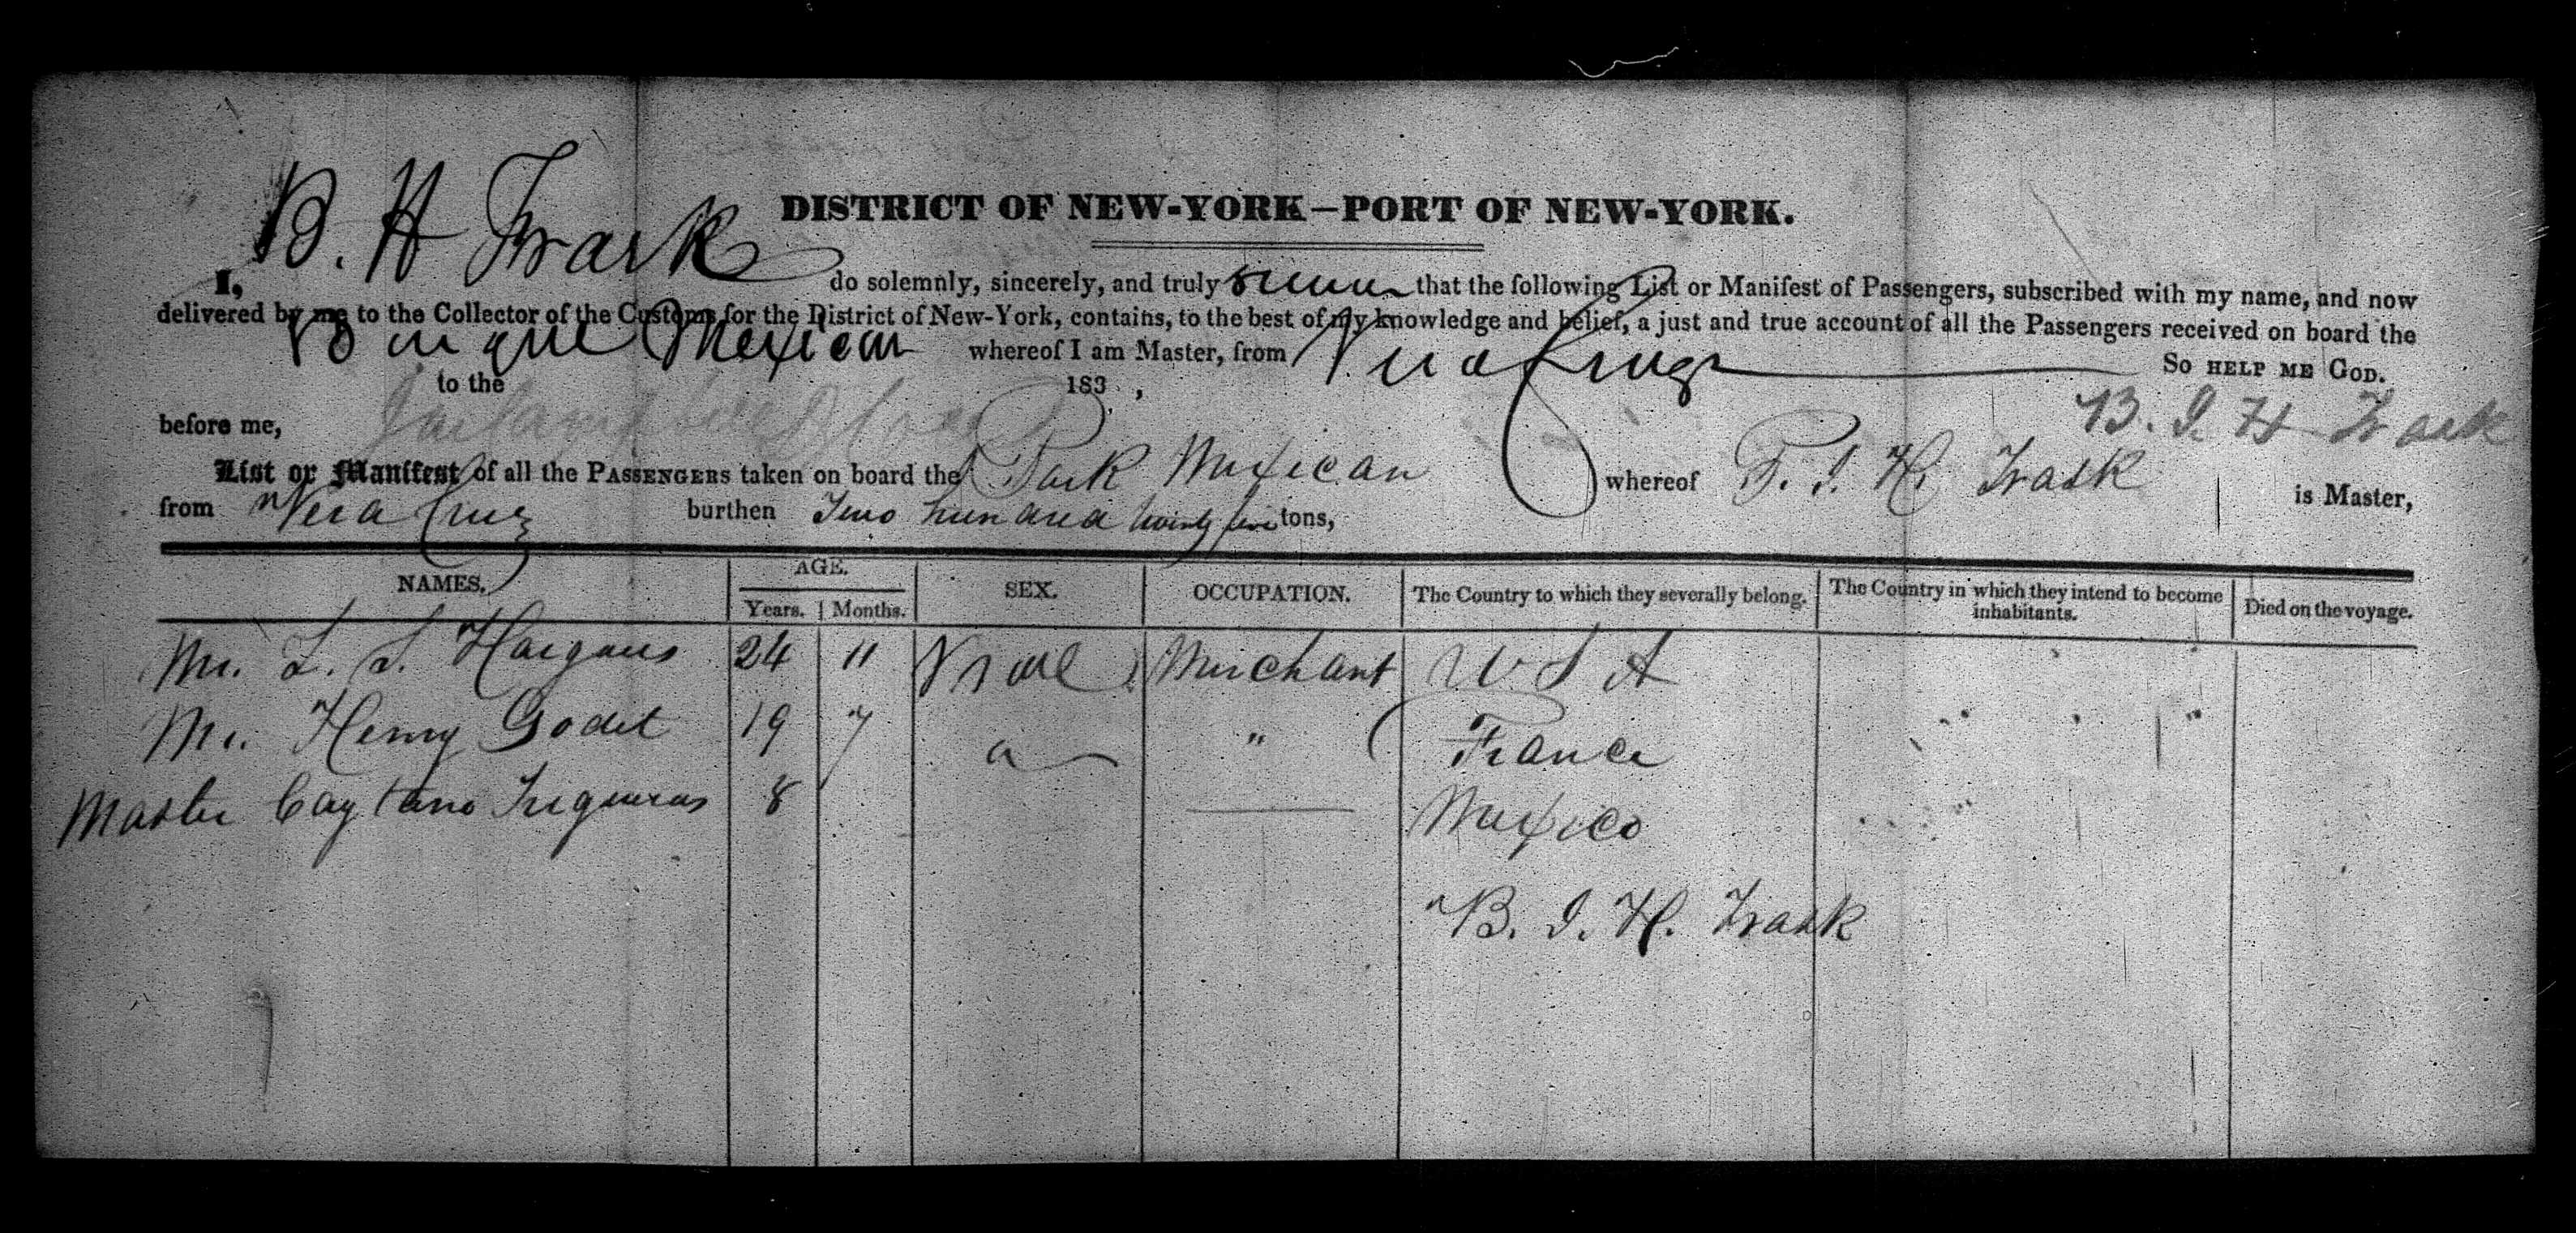 DISTRICT OF NEW-YORK—PORT OF NEW-YORK.
I, B. H Trask do solemnly, sincerely, and truly swear that the following List or Manifest of Passengers, subscribed with my name, and now
delivered by me to the Collector of the Customs for the District of New-York, contains, to the best of my knowledge and belief, a just and true account of all the Passengers received on board the
Barque Mexican whereof I am Master, from Vera Cruz So HELP ME GOD.
to the 183 ,
before me, B. I. H Trask
List or Manifest of all the PASSENGERS taken on board the Bark Mexican whereof B. I. H. Trask is Master,
from Vera Cruz burthen Two hundred twenty five tons,
NAMES. AGE. SEX. OCCUPATION. The Country to which they severally belong. The Country in which they intend to become inhabitants. Died on the voyage.
Years. Months.
Mr. L. S. Hargous 24 11 Male Merchant U S A
Mr. Henry Godet 19 7 " France
Master Caytano 8 Mexico
B. I. H. Trask